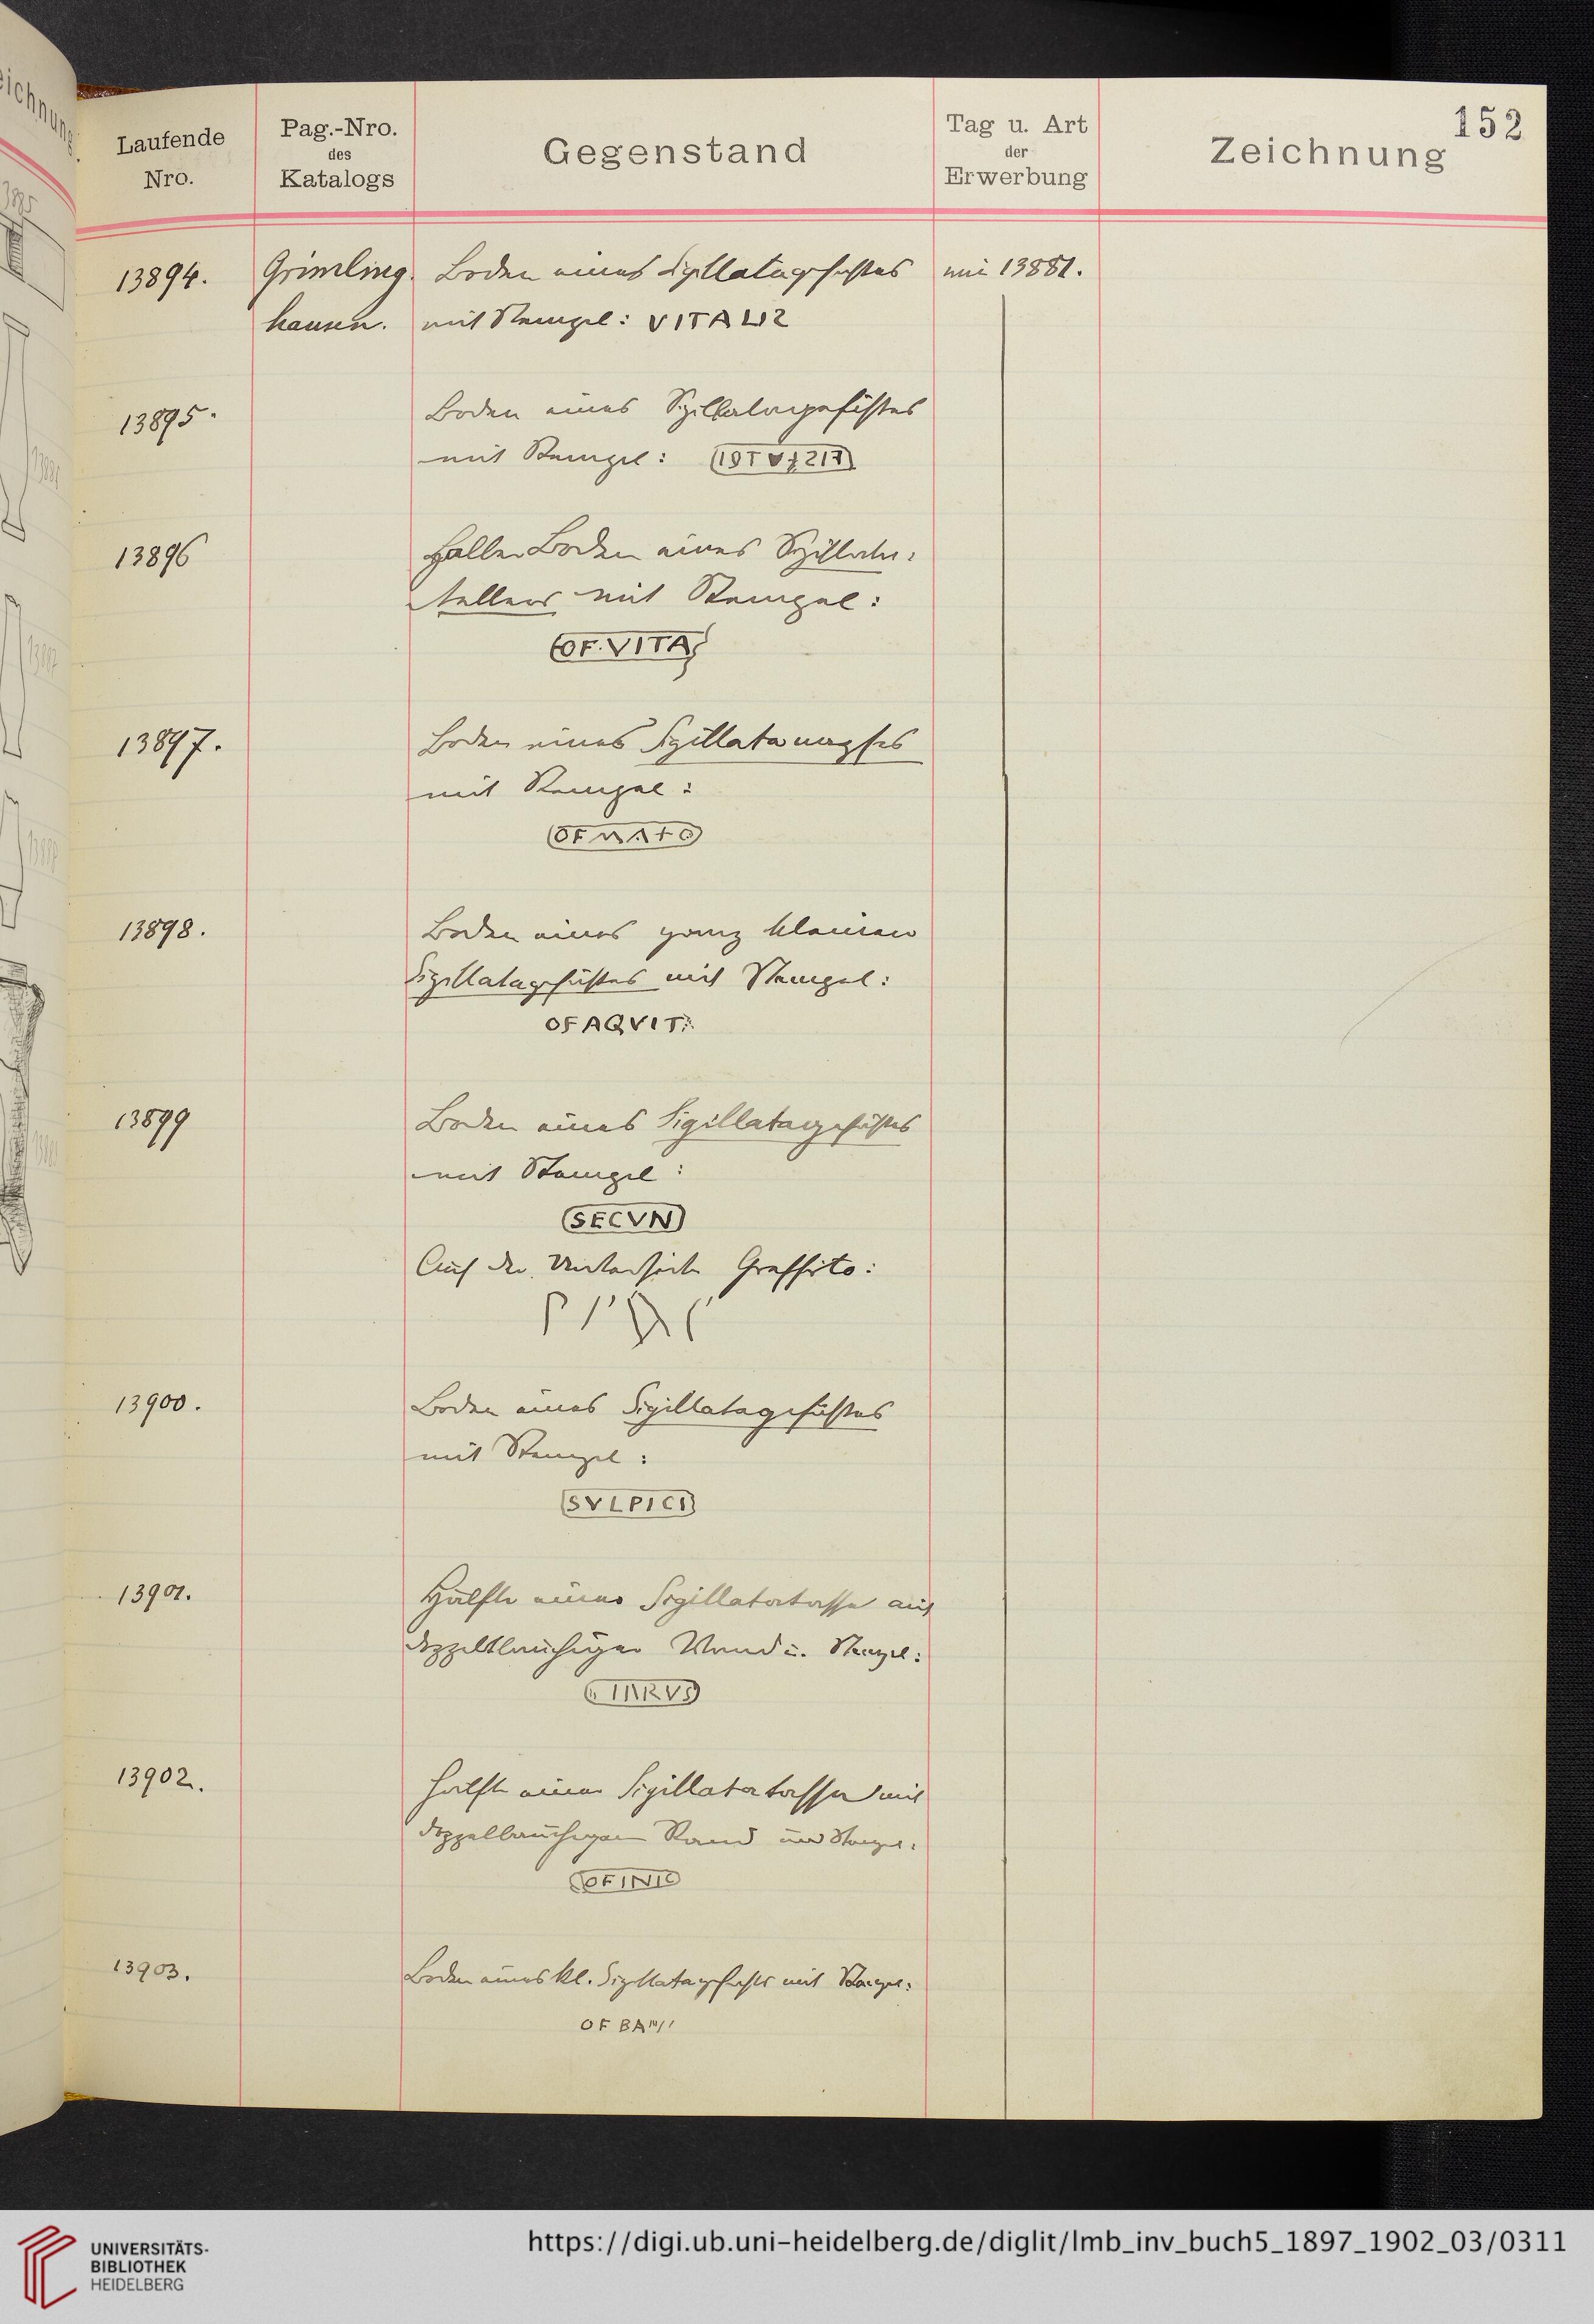 152
Laufende Nro.
Pag.-Nro. des Katalogs
Gegenstand
Tag u. Art der Erwerbung
Zeichnung
13894. Grimling- Boden eines Sigillatagefässes wie 13881.
hausen. mit Stempel: VITA
13895. Boden eines Sigillatagefässes
mit Stempel:
13896 Boden eines Sigillata-
tellers mit Stempel:
OF.VITA
13897. Boden eines Sigillatanapfes
mit Stempel:
OF
13898. Boden eines ganz kleinen
Sigillatagefässes mit Stempel:
OFAQVIT
13899 Boden eines Sigillatagefässes
mit Stempel:
SECVN
Auf der Unterseite Graffito:
13900. Boden eines Sigillatagefässes
mit Stempel:
SVLPICI
13901. Hälfte einer Sigillatatasse mit
doppeltbauchiger Wand u. Stempel:
13902. Hälfte einer Sigillatatasse mit
Stempel:
OFINIC
13903. Boden eines kl. Sigillatagefässes mit Stempel:
OF BA
13885
UNIVERSITÄTS-
BIBLIOTHEK
HEIDELBERG
https://digi.ub.uni-heidelberg.de/diglit/lmb_inv_buch5_1897_1902_03/0311